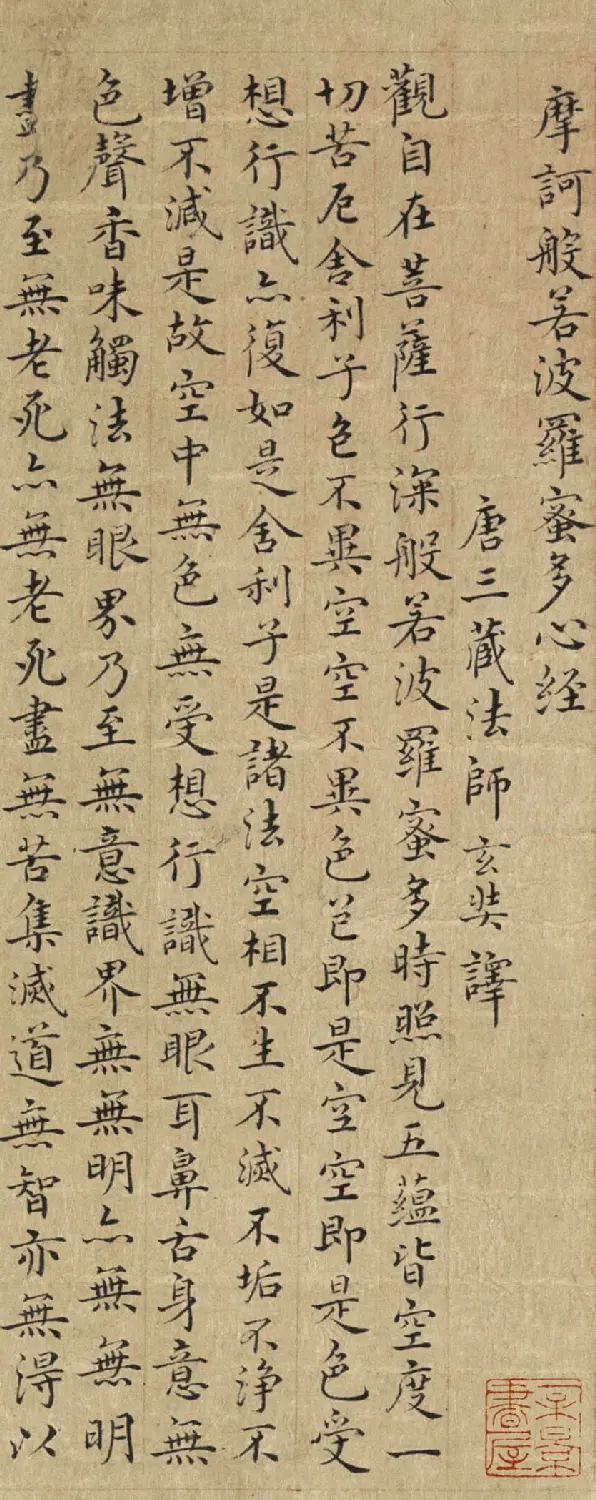 摩訶般若波羅蜜多心経
唐三藏法師玄奘譯
觀自在菩薩行深般若波羅蜜多時照見五蘊皆空度一
切苦厄舍利子色不異空空不異色色即是空空即是色受
想行識亦復如是舍利子是諸法空相不生不滅不垢不淨不
增不減是故空中無色無受想行識無眼耳鼻舌身意無
色聲香味觸法無眼界乃至無意識界無無明亦無無明
盡乃至無老死亦無老死盡無苦集滅道無智亦無得以
書屋